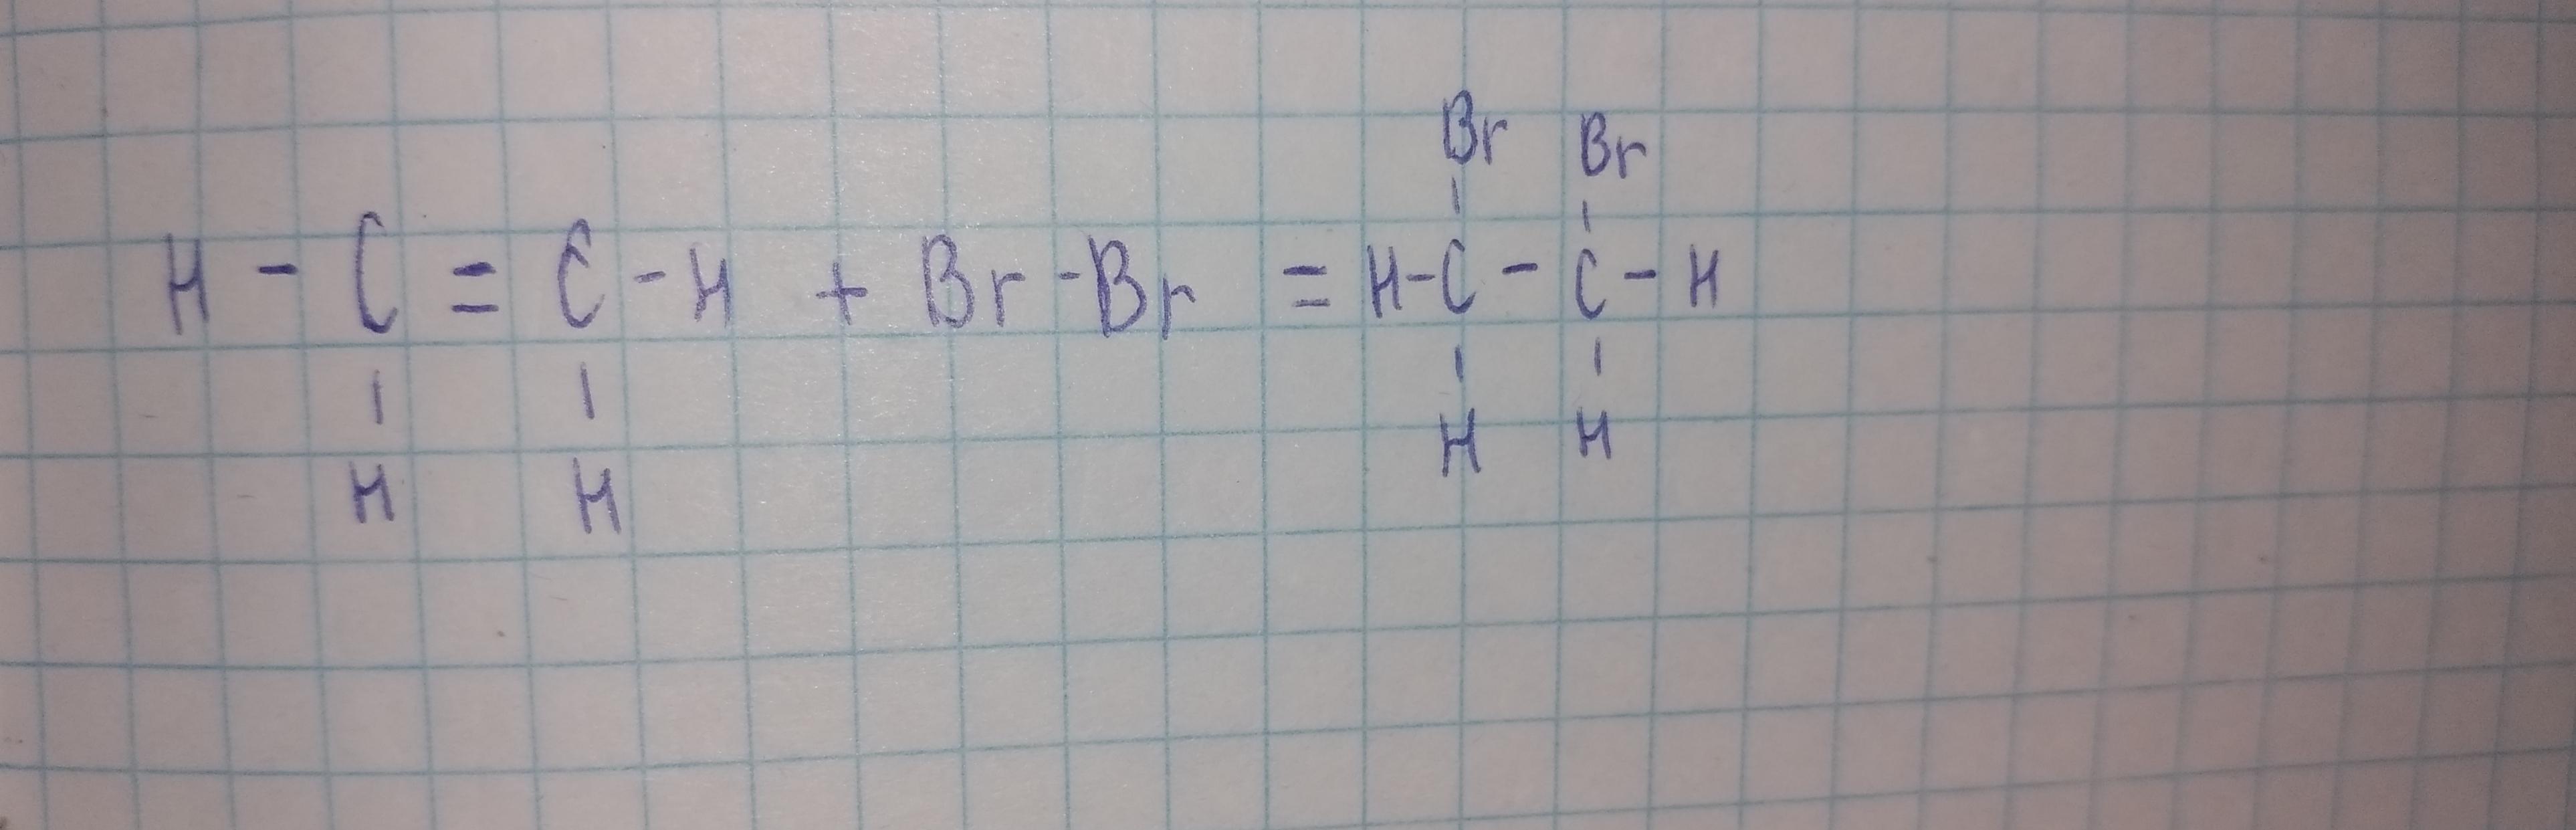 Br Br
H - C = C - H + Br - Br = H - C - C - H
H H H H